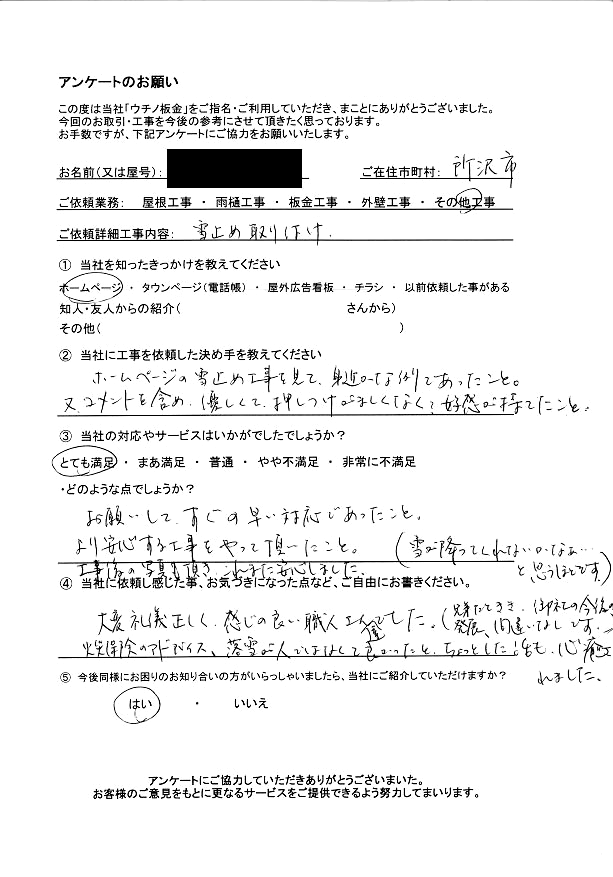 アンケートのお願い
この度は当社「ウチノ板金」をご指名・ご利用していただき、まことにありがとうございました。
今回のお取引・工事を今後の参考にさせて頂きたく思っております。
お手数ですが、下記アンケートにご協力をお願いいたします。
お名前(又は屋号): ご在住市町村: 所沢市
ご依頼業務: 屋根工事 ・ 雨樋工事 ・ 板金工事 ・ 外壁工事 ・ その他工事
ご依頼詳細工事内容: 雪止め取り付け.
① 当社を知ったきっかけを教えてください
ホームページ ・ タウンページ(電話帳) ・ 屋外広告看板 ・ チラシ ・ 以前依頼した事がある
知人・友人からの紹介( さんから)
その他( )
② 当社に工事を依頼した決め手を教えてください
ホームページの雪止め工事を見て、身近かな例であったこと。
又、コメントを含め、優しくて、押しつけがましくなくて好感が持てたこと。
③ 当社の対応やサービスはいかがでしたでしょうか?
とても満足 ・ まあ満足 ・ 普通 ・ やや不満足 ・ 非常に不満足
・どのような点でしょうか?
お願いして、すぐの早い対応であったこと。
より安心する工事をやって頂いたこと。(雪が降ってくれないかなぁ…
工事後の写真も頂き、これまた安心しました。 と思うほどです)
④ 当社に依頼し感じた事、お気づきになった点など、ご自由にお書きください。
大変礼儀正しく、感じの良い職人さん達でした。(御社の今後の
発展、間違いなしです。)
火災保険のアドバイス、落雪が人ではなくて良かったと、ちょっとした話も、心癒さ
れました。
⑤ 今後同様にお困りのお知り合いの方がいらっしゃいましたら、当社にご紹介していただけますか?
はい ・ いいえ
アンケートにご協力していただきありがとうございまいた。
お客様のご意見をもとに更なるサービスをご提供できるよう努力してまいります。